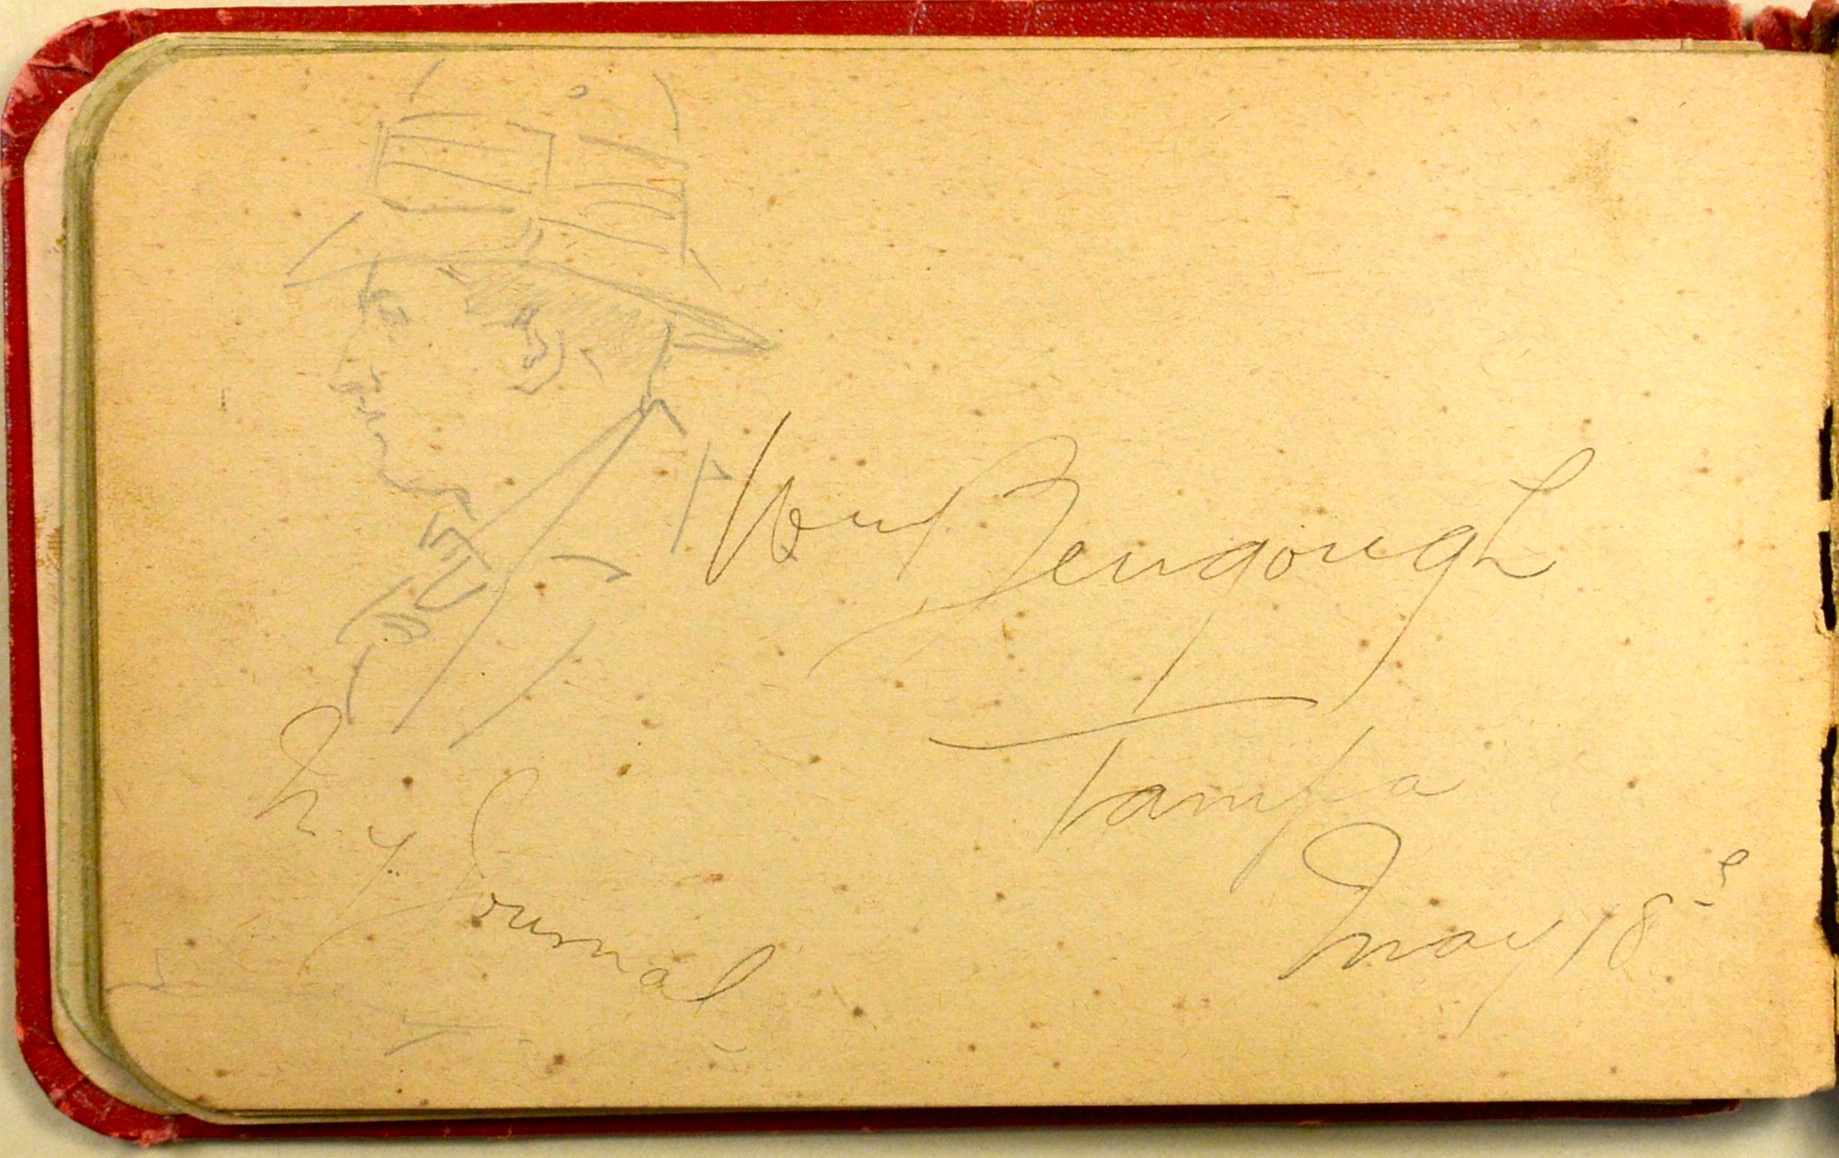 Wm Bengough
Tampa
May 18
N.Y Journal